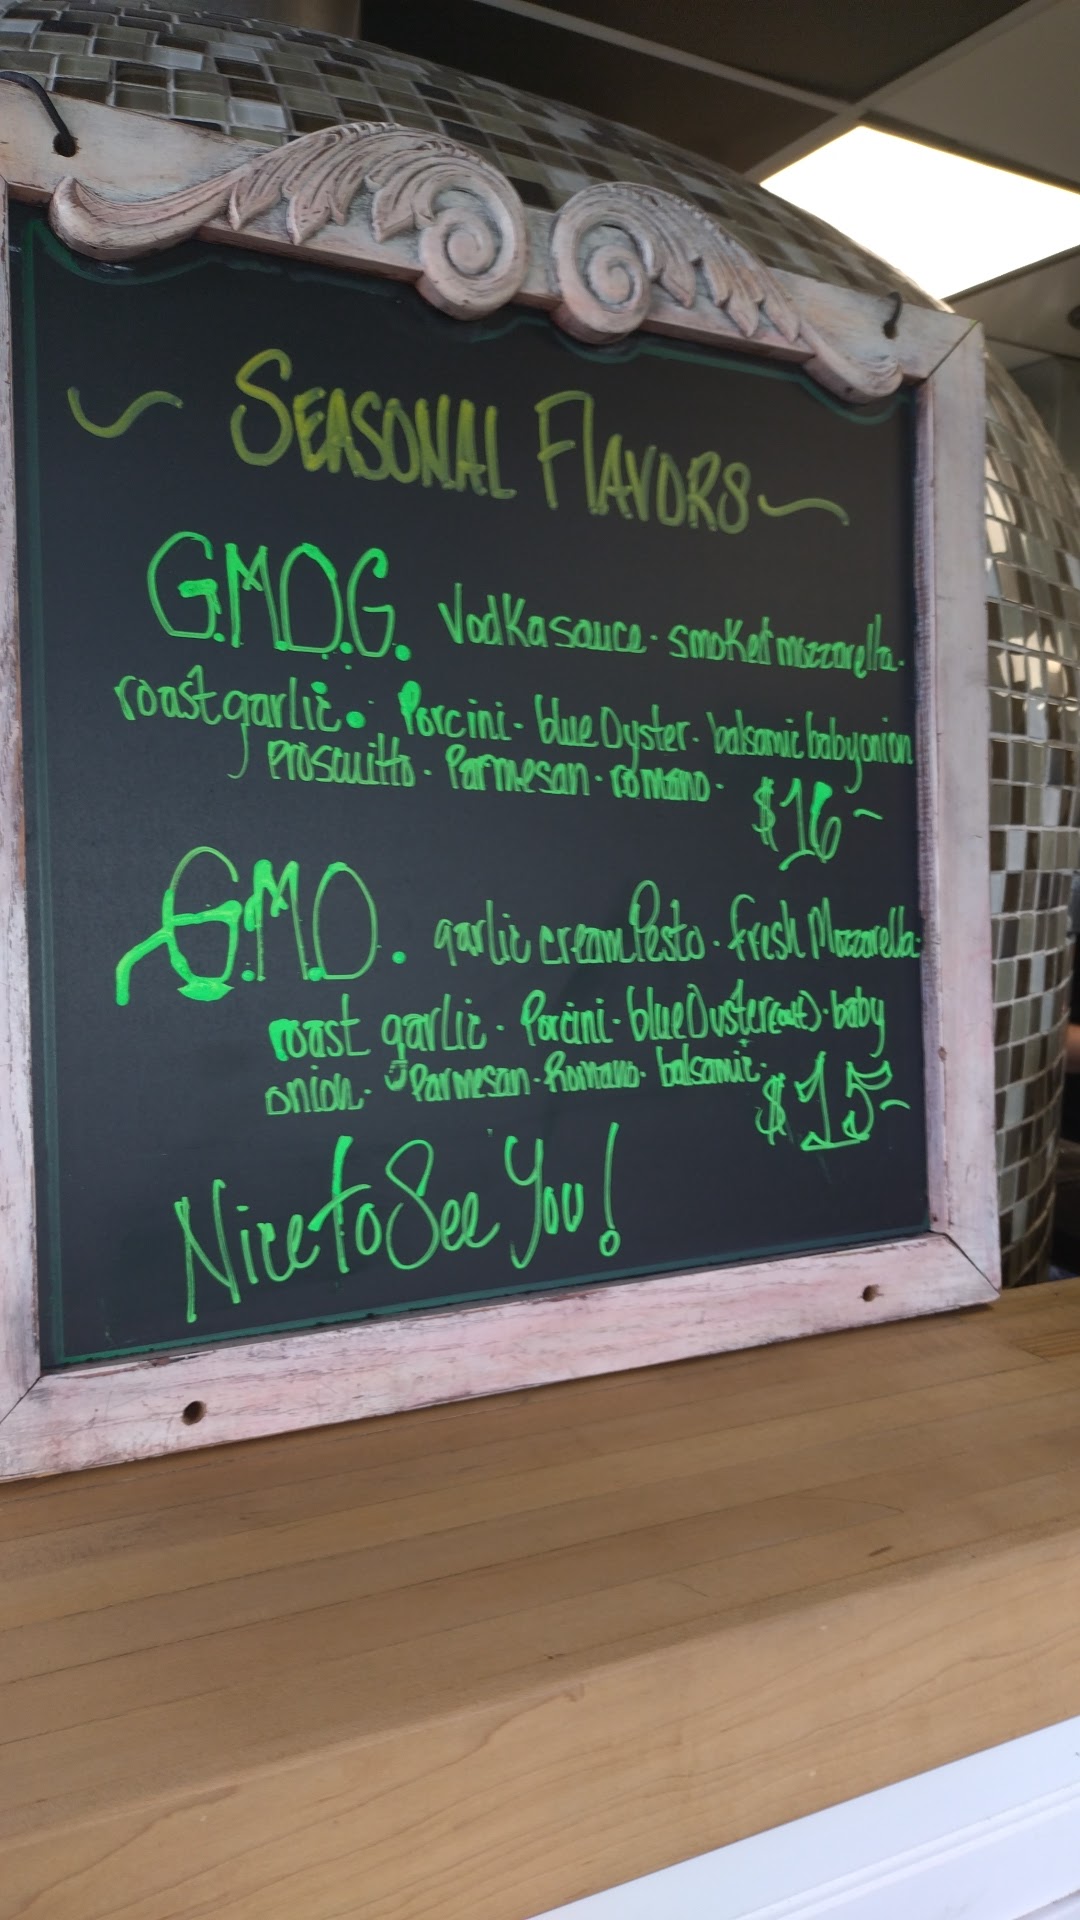 ~ SEASONAL FLAVORS ~
G.M.O.G. Vodka sauce · smoked mozzarella ·
roast garlic · Porcini · blue Oyster · balsamic baby onion
prosciutto · Parmesan · romano · $16~
G.M.O. garlic cream Pesto · fresh Mozzarella ·
roast garlic · Porcini · blue Oyster · baby
onion · Parmesan · Romano · balsamic · $15~
Nice to See You!